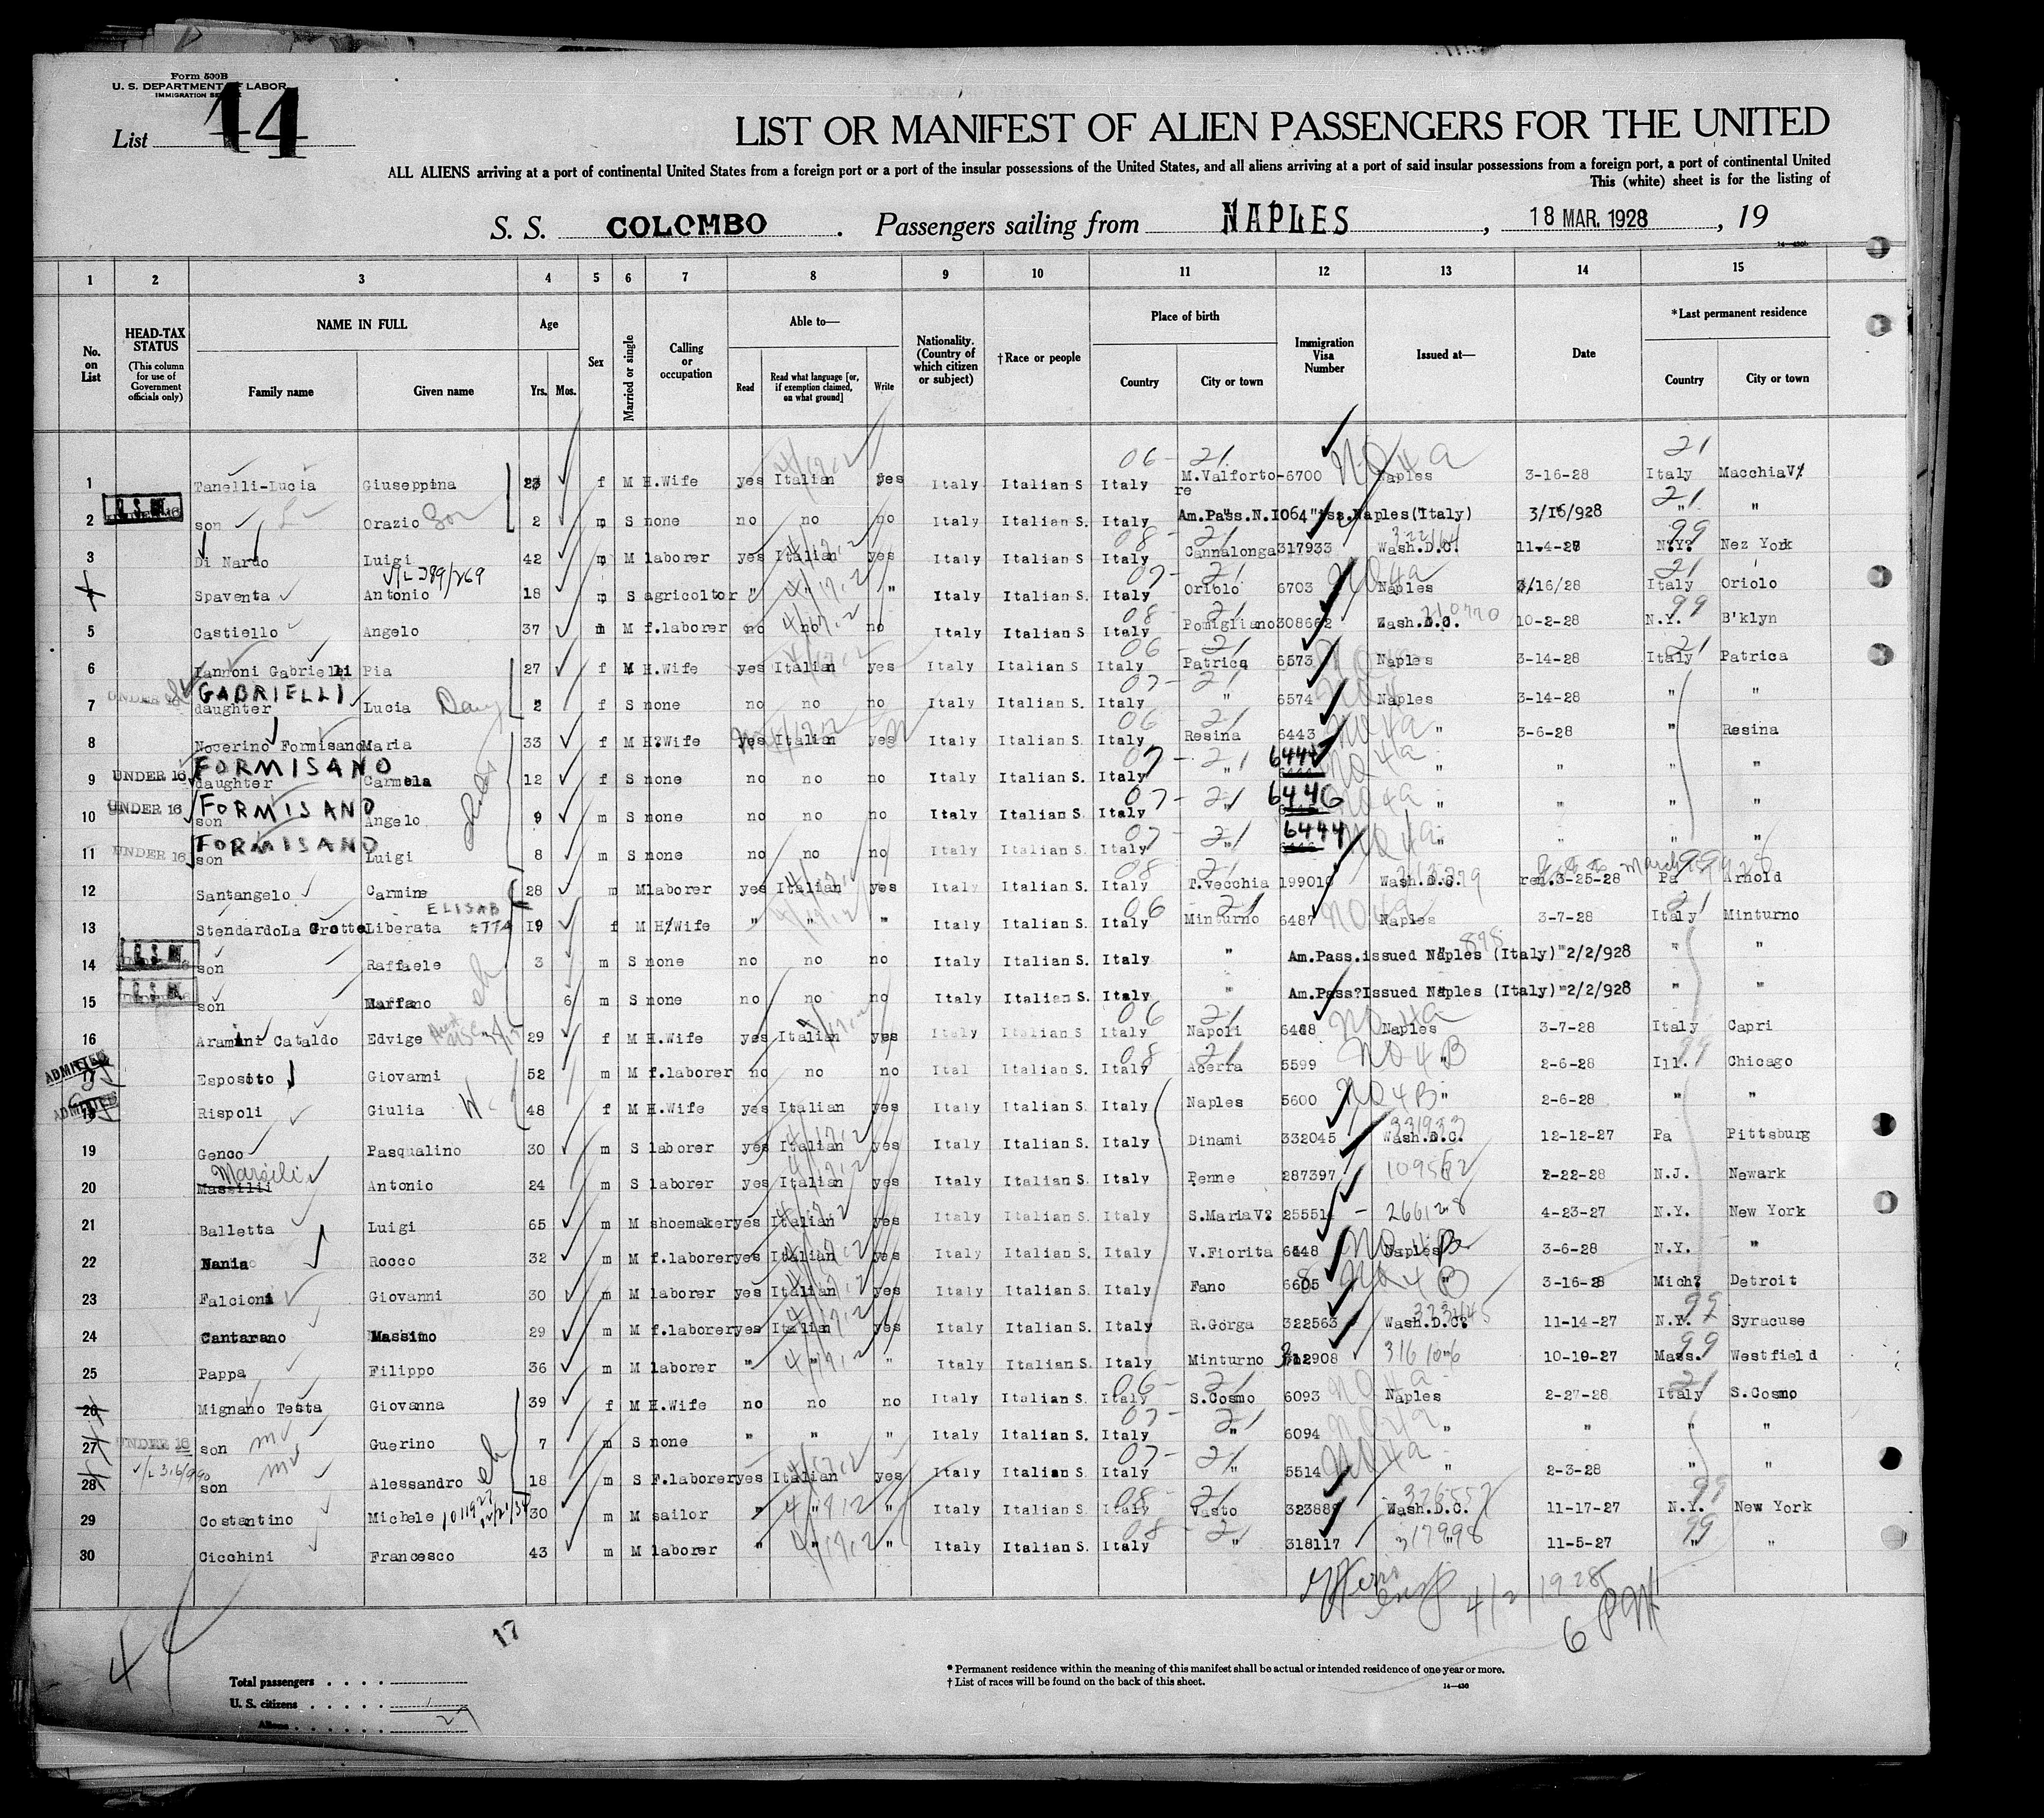 Form 500B
U. S. DEPARTMENT OF LABOR
IMMIGRATION
List 44
LIST OR MANIFEST OF ALIEN PASSENGERS FOR THE UNITED
ALL ALIENS arriving at a port of continental United States from a foreign port or a port of the insular possessions of the United States, and all aliens arriving at a port of said insular possessions from a foreign port, a port of continental United
This (white) sheet is for the listing of
S. S. COLOMBO. Passengers sailing from NAPLES, 18 MAR. 1928, 19
1 2 3 4 5 6 7 8 9 10 11 12 13 14 15
No. on List
HEAD-TAX STATUS (This column for use of Government officials only)
NAME IN FULL Family name Given name
Age Yrs. Mos.
Sex
Married or single
Calling or occupation
Able to— Read Read what language [or, if exemption claimed, on what ground] Write
Nationality. (Country of which citizen or subject)
†Race or people
Place of birth Country City or town
Immigration Visa Number
Issued at—
Date
*Last permanent residence Country City or town
1 Tanelli-Lucia Giuseppina 23 f M H.Wife yes Italian yes Italy Italian S Italy M.Valforto-re 6700 Naples 3-16-28 Italy Macchia V/
2 son Orazio Son 2 m S none no no no Italy Italian S. Italy Am.Pass.N.1064 iss.Naples(Italy) 3/16/928 " "
3 Di Nardo Luigi 42 m M laborer yes Italian yes Italy Italian S. Italy Cannalonga 317933 Wash.D.C. 11-4-28 N.Y? Nez York
V/L 389/269
Spaventa Antonio 18 m S agricoltor " " " Italy Italian S. Italy Oriolo 6703 Naples 3/16/28 Italy Oriolo
5 Castiello Angelo 37 m M f.laborer no no no Italy Italian S. Italy Pomigliano 308662 Wash.D.C. 10-2-28 N.Y. B'klyn
6 Iannoni Gabrielli Pia 27 f M H.Wife yes Italian yes Italy Italian S Italy Patrica 6573 Naples 3-14-28 Italy Patrica
GABRIELLI
7 UNDER 16 daughter Lucia 2 f S none no no no Italy Italian S. Italy " 6574 Naples 3-14-28 " "
8 Nocerino Formisano Maria 33 f M H?Wife yes Italian yes Italy Italian S. Italy Resina 6443 " 3-6-28 " Resina
FORMISANO
9 UNDER 16 daughter Carmela 12 f S none no no no Italy Italian S. Italy " " " " "
FORMISANO 6446
10 UNDER 16 son Angelo 9 m S none no no no Italy Italian S. Italy " " " " "
FORMISANO 6444
11 UNDER 16 son Luigi 8 m S none no no no Italy Italian S. Italy " " " " "
12 Santangelo Carmine 28 m M laborer yes Italian yes Italy Italian S. Italy T.vecchia 199010 Wash.D.C. ren.3-25-28 Pa Arnold
ELISABETTA
13 Stendardo La Grotta Liberata 19 f M H/Wife " " " Italy Italian S. Italy Minturno 6487 Naples 3-7-28 Italy Minturno
14 son Raffaele 3 m S none no no no Italy Italian S. Italy " Am.Pass.issued Naples (Italy) 2/2/928 " "
15 son 6 m S none no no no Italy Italian S. Italy " Am.Pass?Issued Naples (Italy) 2/2/928 " "
16 Aramini Cataldo Edvige 29 f M H.Wife yes Italian yes Italy Italian S. Italy Napoli 6488 Naples 3-7-28 Italy Capri
ADMITTED Esposito Giovanni 52 m M f.laborer no no no Ital Italian S. Italy Acerra 5599 " 2-6-28 Ill. Chicago
ADMITTED Rispoli Giulia 48 f M H.Wife yes Italian yes Italy Italian S. Italy Naples 5600 " 2-6-28 " "
19 Genco Pasqualino 30 m S laborer yes Italian yes Italy Italian S. Italy Dinami 332045 Wash.D.C. 12-12-27 Pa Pittsburg
Marsili
20 Massilii Antonio 24 m S laborer yes Italian yes Italy Italian S. Italy Penne 287397 109562 2-22-28 N.J. Newark
21 Balletta Luigi 65 m M shoemaker yes Italian yes Italy Italian S. Italy S.Maria V? 255511 - 266128 4-23-27 N.Y. New York
22 Nania Rocco 32 m M f.laborer yes Italian yes Italy Italian S. Italy V.Fiorita 6448 Naples 3-6-28 N.Y. "
23 Falcioni Giovanni 30 m M laborer yes Italian yes Italy Italian S. Italy Fano 6605 " 3-16-28 Mich? Detroit
24 Cantarano Massimo 29 m M f.laborer yes Italian yes Italy Italian S. Italy R.Gorga 322563 Wash.D.C? 11-14-27 N.Y. Syracuse
25 Pappa Filippo 36 m M laborer " " " Italy Italian S. Italy Minturno 312908 316106 10-19-27 Mass. Westfield
26 Mignano Testa Giovanna 39 f M H.Wife no no no Italy Italian S. Italy S.Cosmo 6093 Naples 2-27-28 Italy S.Cosmo
27 UNDER 16 son Guerino 7 m S none " " " Italy Italian S. Italy " 6094 " " " "
28 son Alessandro 18 m S F.laborer yes Italian yes Italy Italian S. Italy " 5514 " 2-3-28 " "
29 Costantino Michele 30 m M sailor " " " Italy Italian S. Italy Vasto 323889 Wash.D.C. 11-17-27 N.Y. New York
30 Cicchini Francesco 43 m M laborer " " " Italy Italian S. Italy " 318117 317998 11-5-27 " "
4/2/1928
6 PM
17
Total passengers
U. S. citizens
Aliens 27
* Permanent residence within the meaning of this manifest shall be actual or intended residence of one year or more.
† List of races will be found on the back of this sheet.
14—430